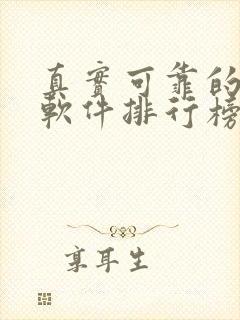 真實可靠的
軟件排行榜
京耳生